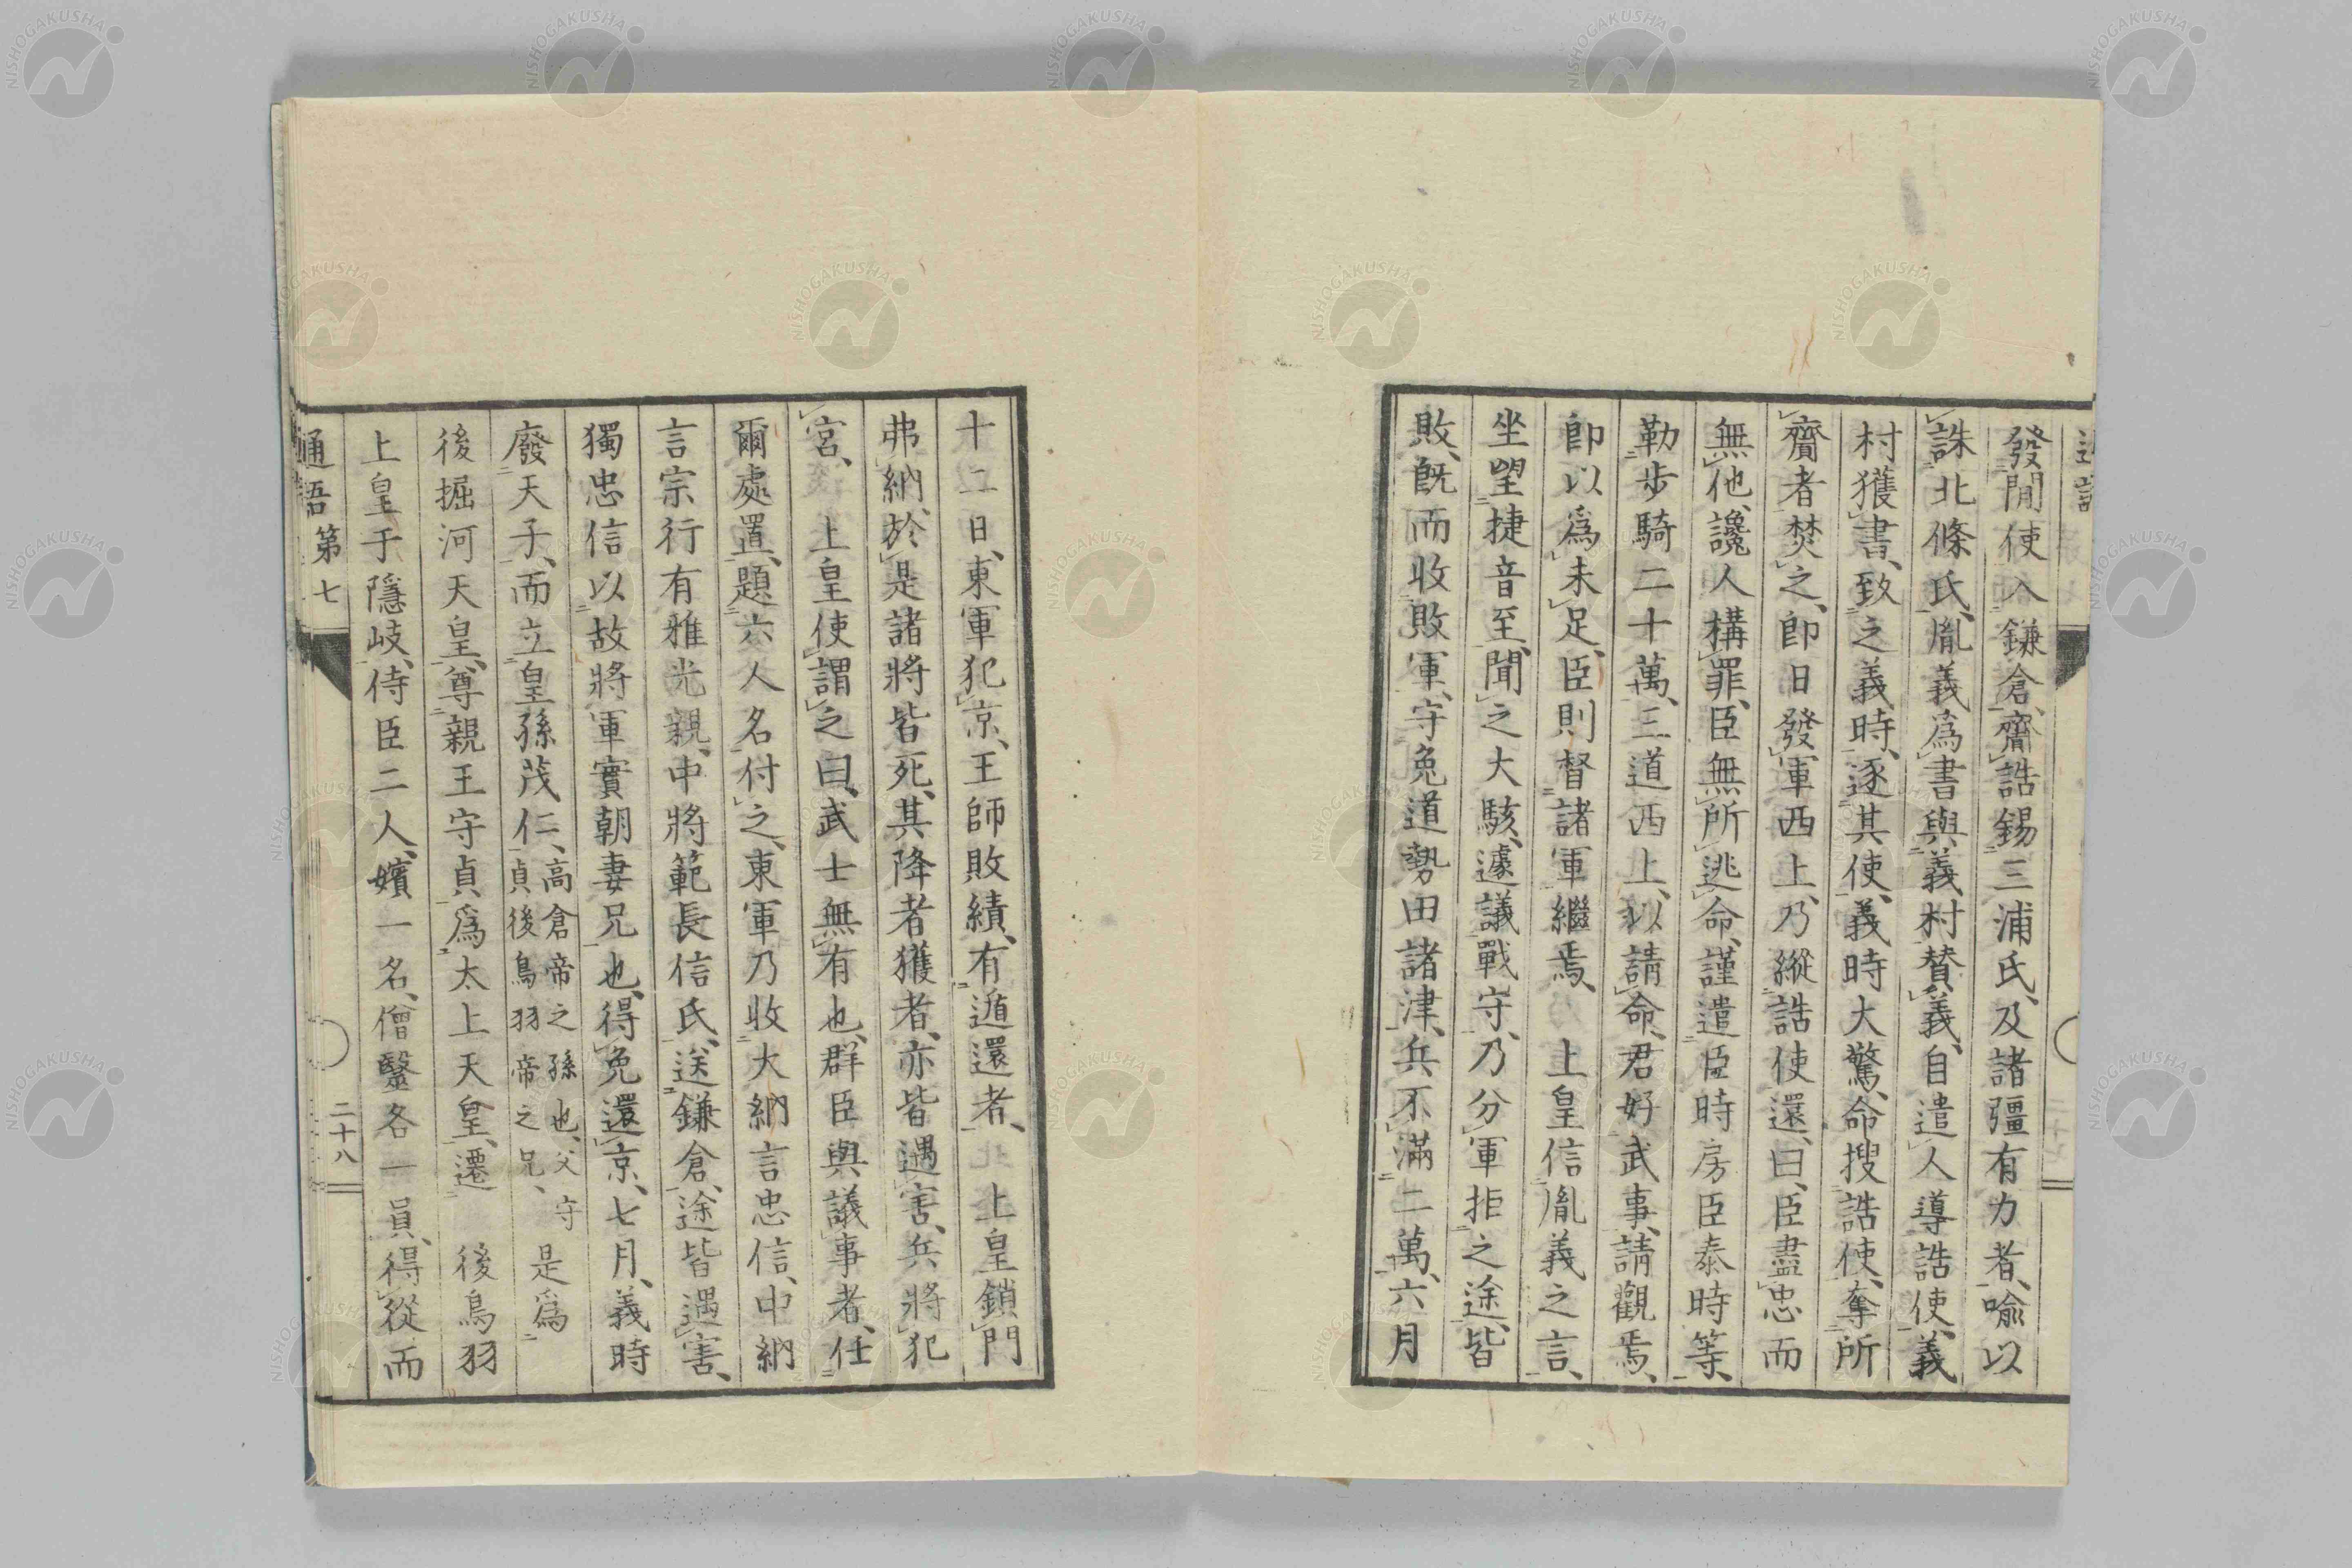 發間使入鎌倉、齎誥錫三浦氏、及諸彊有力者、喻以
誅北條氏、胤義爲書與義村贊義、自遣人導誥使、義
村獲書、致之義時、逐其使、義時大驚、命搜誥使、奪所
齎者焚之、卽日發軍西上、乃縱誥使還、曰、臣盡忠而
無他、讒人構罪、臣無所逃命、謹遣臣時房臣泰時等、
勒步騎二十萬、三道西上、以請命、君好武事、請觀焉、
卽以爲未足、臣則督諸軍繼焉、上皇信胤義之言、
坐望捷音至、聞之大駭、遽議戰守、乃分軍拒之途、皆
敗、旣而收敗軍、守兔道勢田諸津、兵不滿二萬、六月
十二日、東軍犯京、王師敗績、有遁還者、上皇鎖門
弗納、於是諸將皆死、其降者獲者、亦皆遇害、兵將犯
宮、上皇使謂之曰、武士無有也、群臣與議事者、任
爾處置、題六人名付之、東軍乃收大納言忠信、中納
言宗行有雅光親、中將範長信氏、送鎌倉、途皆遇害、
獨忠信以故將軍實朝妻兄也、得免還京、七月、義時
廢天子、而立皇孫茂仁、高倉帝之孫也、父守貞後鳥羽帝之兄、是爲
後掘河天皇、尊親王守貞、爲太上天皇、遷後鳥羽
上皇于隱岐、侍臣二人、嬪一名、僧毉各一員、得從而
通語第七
二十八
NISHOGAKUSHA